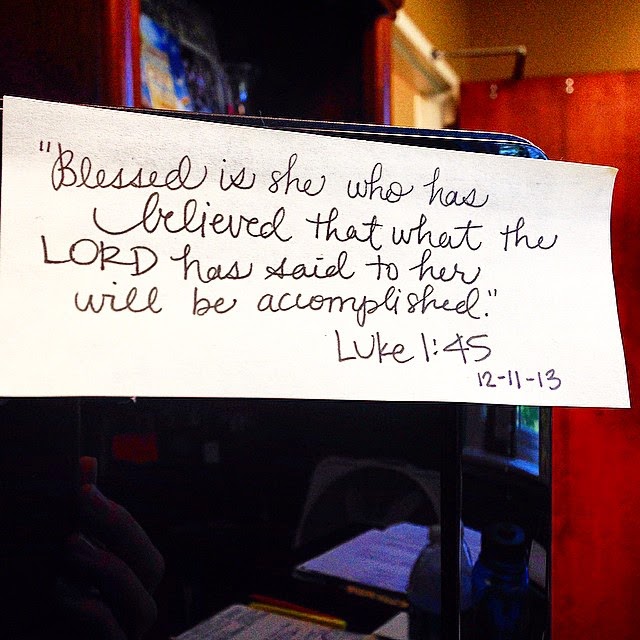 "Blessed is she who has
believed that what the
LORD has said to her
will be accomplished."
Luke 1:45
12-11-13